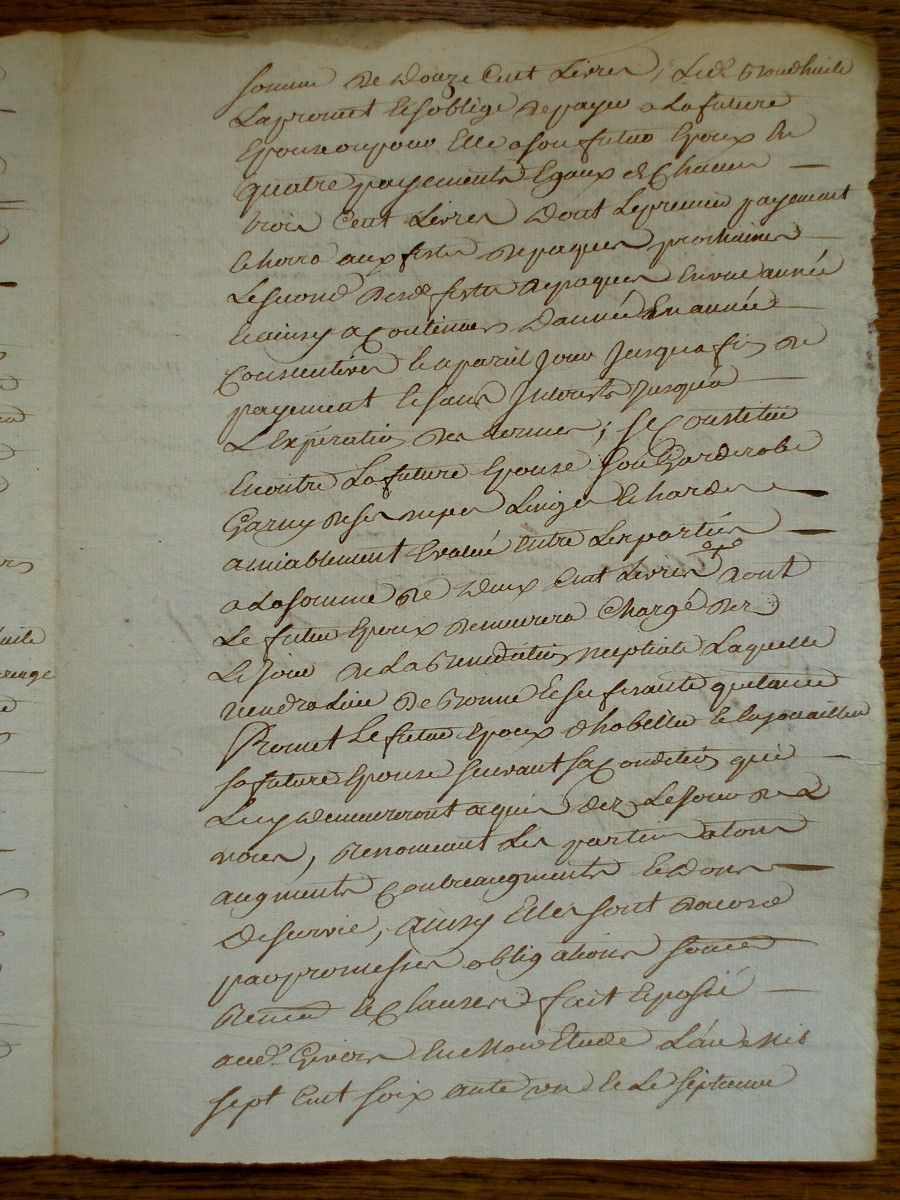 somme de douze Cent Livres, Led. Broudhuile
La promet et soblige de payer a La future
Epouse ou pour Elle a son futur Epoux En
quatre payements Egaux de Chacun
trois Cent Livres dont Le premier payement
Echerra aux festes de paques prochaines
Le second desd. festes de paques En une année
Et ainsy a Continuer dannée En année
Consecutives Et a pareil Jour Jusqua fin de
payement Et sans Interests Jusqu'a
L'Expiration des termes; se Constitüe
En outre La future Epouse Son Garderobe
Garny de ses nipes Linges Et hardes
amiablement Evalué Entre Les parties
a La somme de deux Cent Livres dont
Le futur Epoux demeurera Chargé dez
Le Jour de La Benediction nuptiale Laquelle
tiendra Lieu de Bonne Et suffisante quitance
Promet Le futur Epoux dhabiller Et Enjouailler
sa future Epouse suivant sa Condition que
Luy demeureront aquis dez Le Jour des
noces, Renonceant Les parties a tous
augments Contreaugments Et dons
de survie, ainsy Elles sont dacord
par promesses obligations soumes
Renon Et Clauses fait Et passé
aud. Givors En mon Etude L'an mis
sept Cent soix ante un Et Le septieme